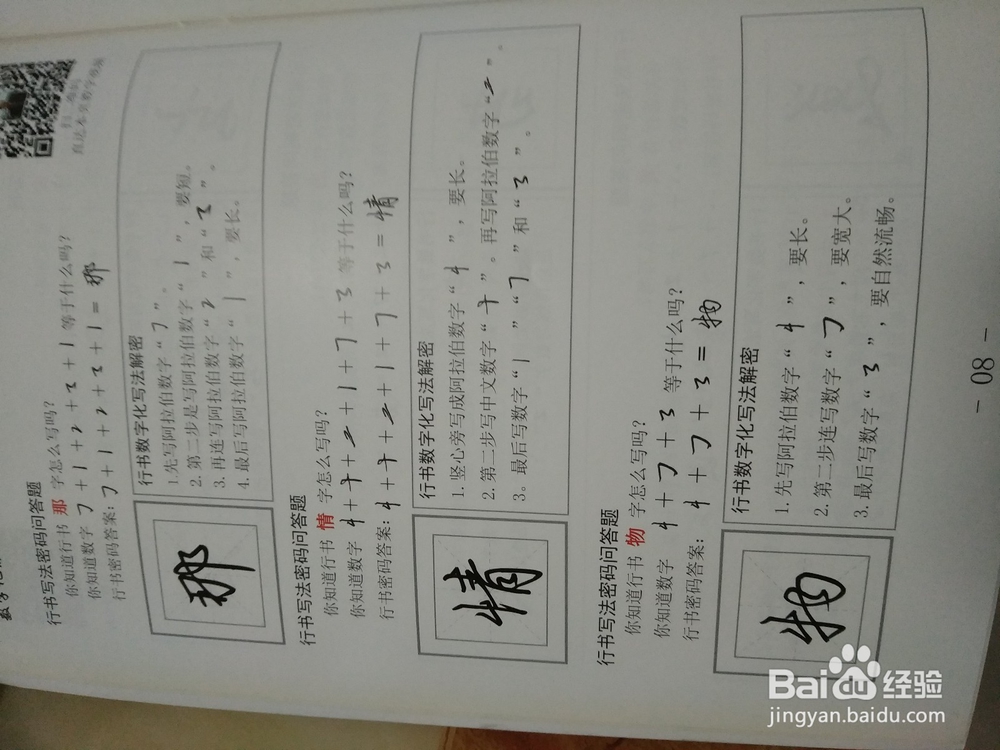 扫一扫码
直达本页教学视频
行书写法密码问答题
你知道行书 那 字怎么写吗?
你知道数字 7+1+2+3+1 等于什么吗?
行书密码答案: 7+1+2+3+1=那
那
行书数字化写法解密
1.先写阿拉伯数字“7”。
2.第二步是写阿拉伯数字“1”,要短。
3.再连写阿拉伯数字“2”和“3”。
4.最后写阿拉伯数字“1”,要长。
行书写法密码问答题
你知道行书 情 字怎么写吗?
你知道数字 4+十+2+1+7+3 等于什么吗?
行书密码答案: 4+十+2+1+7+3=情
情
行书数字化写法解密
1.竖心旁写成阿拉伯数字“4”,要长。
2.第二步写中文数字“十”。再写阿拉伯数字“2”。
3。最后写数字“1”“7”和“3”。
行书写法密码问答题
你知道行书 物 字怎么写吗?
你知道数字 4+7+3 等于什么吗?
行书密码答案: 4+7+3=物
物
行书数字化写法解密
1.先写阿拉伯数字“4”,要长。
2.第二步连写数字“7”,要宽大。
3.最后写数字“3”,要自然流畅。
- 08 -
Baidu 经验
jingyan.baidu.com